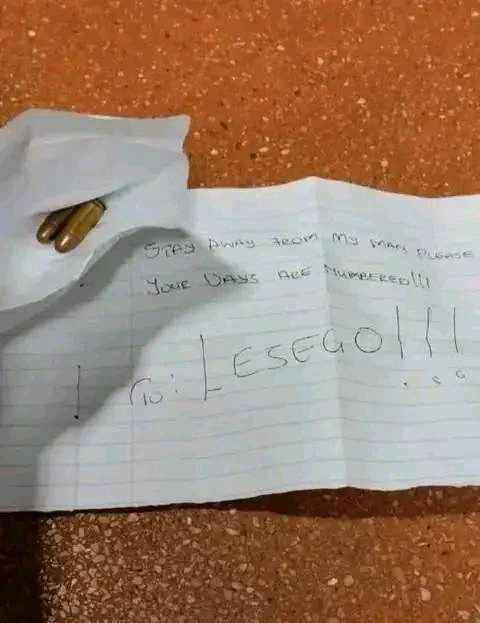 STAY AWAY FROM MY MAN PLEASE
YOUR DAYS ARE NUMBERED!!!
TO: LESEGO!!!